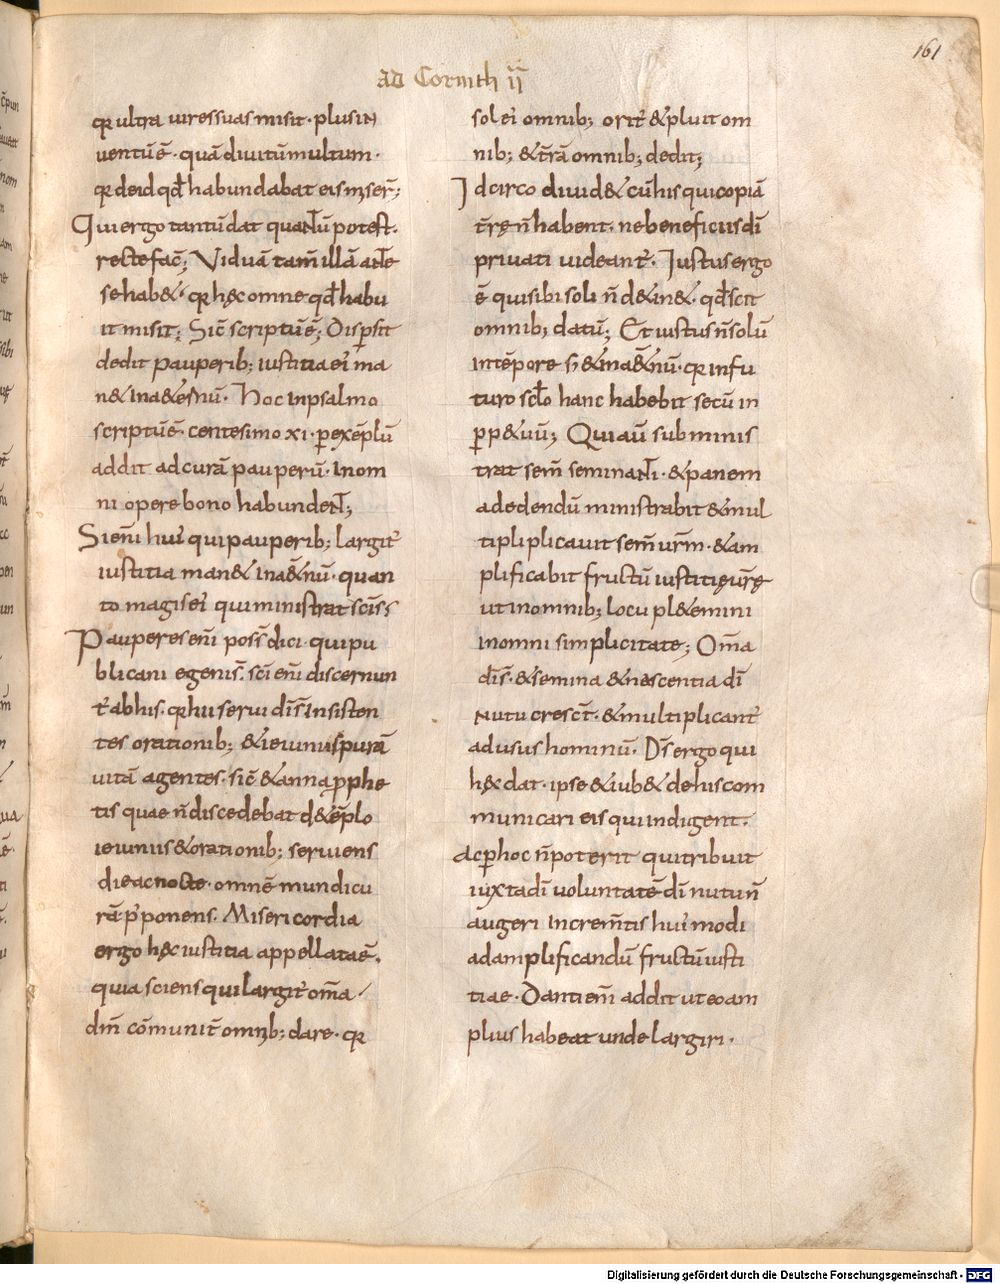 161
ad Corinth ii
qr ultra uires suas misit · plus in
uentū ē · quā diuitū multum ·
qr de id qđ habundabat eis miser̄;
Qui ergo tantū dat quantū potest ·
recte fac̄; Viduā tam̄ illā ante
se hab& · qr hęc omne qđ habu
it misit; Sic̄ scriptū ē; Dispersit
dedit pauperib; iustitia ei ma
n& in a&ernū · Hoc in psalmo
scriptū ē · centesimo xi · p exēplū
addit ad curā pauperū · In om
ni opere bono habundent;
Si eni hui qui pauperib; largit
iustitia man& in a&nū · quan
to magis ei qui ministrat scis;
Pauperes eni poss̄ dici · qui pu
blicani egenis · sci eni discernun
t ab his · qr hii serui dī s insisten
tes orationib; & ieiuniis purā
uitā agentes · sic̄ & anna pphe
tis quae n̄ discedebat d& ēplo
ieiuniis & orationib; seruiens
die ac nocte · omnē mundi cu
rā pponens · Misericordia
ergo hęc iustitia appellata ē ·
quia sciens qui largit om̄a
dm̄ cōmunit omnib; dare · qr
sol ei omnib; orit & pluit om
nib; & trā omnib; dedit;
Idcirco diuid& cū his qui copiā
trę n̄ habent · ne beneficiis dī
priuati uideant · Iustus ergo
ē qui sibi soli n̄ d&in& · qđ scit
omnib; datū; Et iustus n̄ solū
in tēpore s; & in a&nū · qr in fu
turo sclo hanc habebit secū in
pp&uū; Qui aū subminis
trat sem̄ seminanti · & panem
ad edendū ministrabit & mul
tipliplicauit sem̄ urm̄ · & am
plificabit fructū iustitię urę
ut in omnib; locupl&emini
in omni simplicitate; Om̄a
dī s · & semina & nascentia dī
nutu cresct · & multiplicant
ad usus hominū · Ds̄ ergo qui
hęc dat · ipse & iub& de his com
municari eis qui indigent ·
ac p hoc n̄ poterit qui tribuit
iuxta dī uoluntatē dī nutu n̄
augeri incrementis hui modi
ad amplificandū fructū iusti
tiae · Danti eni addit ut eo am
plius habeat unde largiri ·
Digitalisierung gefördert durch die Deutsche Forschungsgemeinschaft · DFG